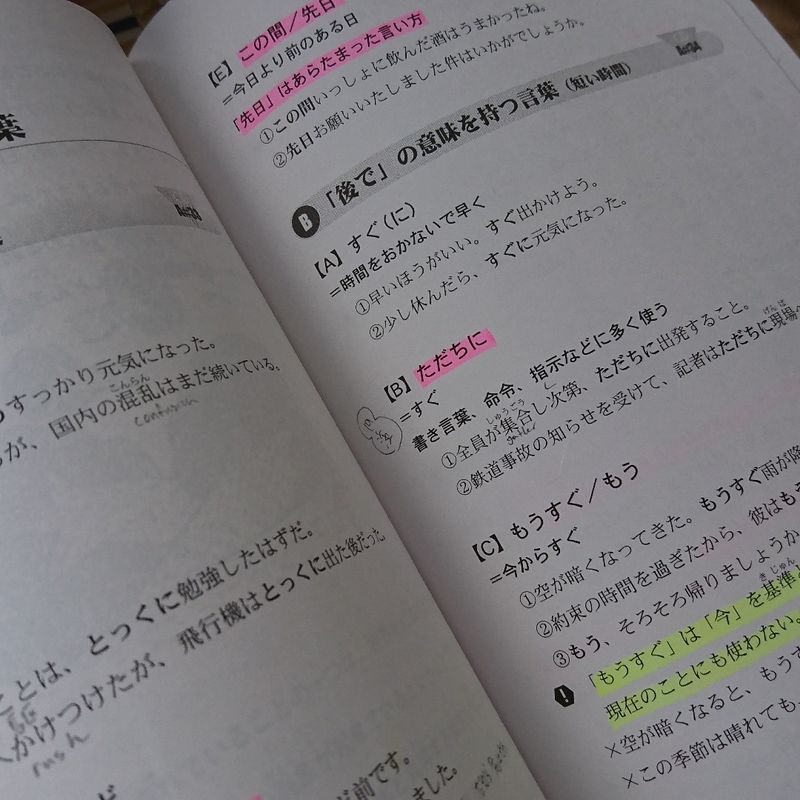 葉
すっかり元気になった。
が、国内の混乱はまだ続いている。
こんらん
confusion
ことは、とっくに勉強したはずだ。
かけつけたが、飛行機はとっくに出た後だった。
rush
前です。
ました。
【E】この間/先日
=今日より前のある日
「先日」はあらたまった言い方
①この間いっしょに飲んだ酒はうまかったね。
②先日お願いいたしました件はいかがでしょうか。
B 「後で」の意味を持つ言葉(短い時間)
【A】すぐ(に)
=時間をおかないで早く
①早いほうがいい。すぐ出かけよう。
②少し休んだら、すぐに元気になった。
【B】ただちに
=すぐ
書き言葉、命令、指示などに多く使う
しゅうごう
①全員が集合し次第、ただちに出発すること。
げんば
②鉄道事故の知らせを受けて、記者はただちに現場
【C】もうすぐ/もう
=今からすぐ
①空が暗くなってきた。もうすぐ雨が降
②約束の時間を過ぎたから、彼はもう
③もう、そろそろ帰りましょうか
きじゅん
! 「もうすぐ」は「今」を基準
現在のことにも使わない。
×空が暗くなると、もうす
×この季節は晴れても、